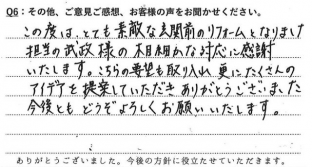 Q6：その他、ご意見ご感想、お客様の声をお聞かせください。
この度は、とても素敵な玄関前のリフォームとなりまして
担当の武政様の木目細かな対応に感謝
いたします。こちらの要望も取り入れ、更にたくさんの
アイデアを提案していただき ありがとうございました
今後とも どうぞよろしくお願いいたします。
ありがとうございました。今後の方針に役立たせていただきます。